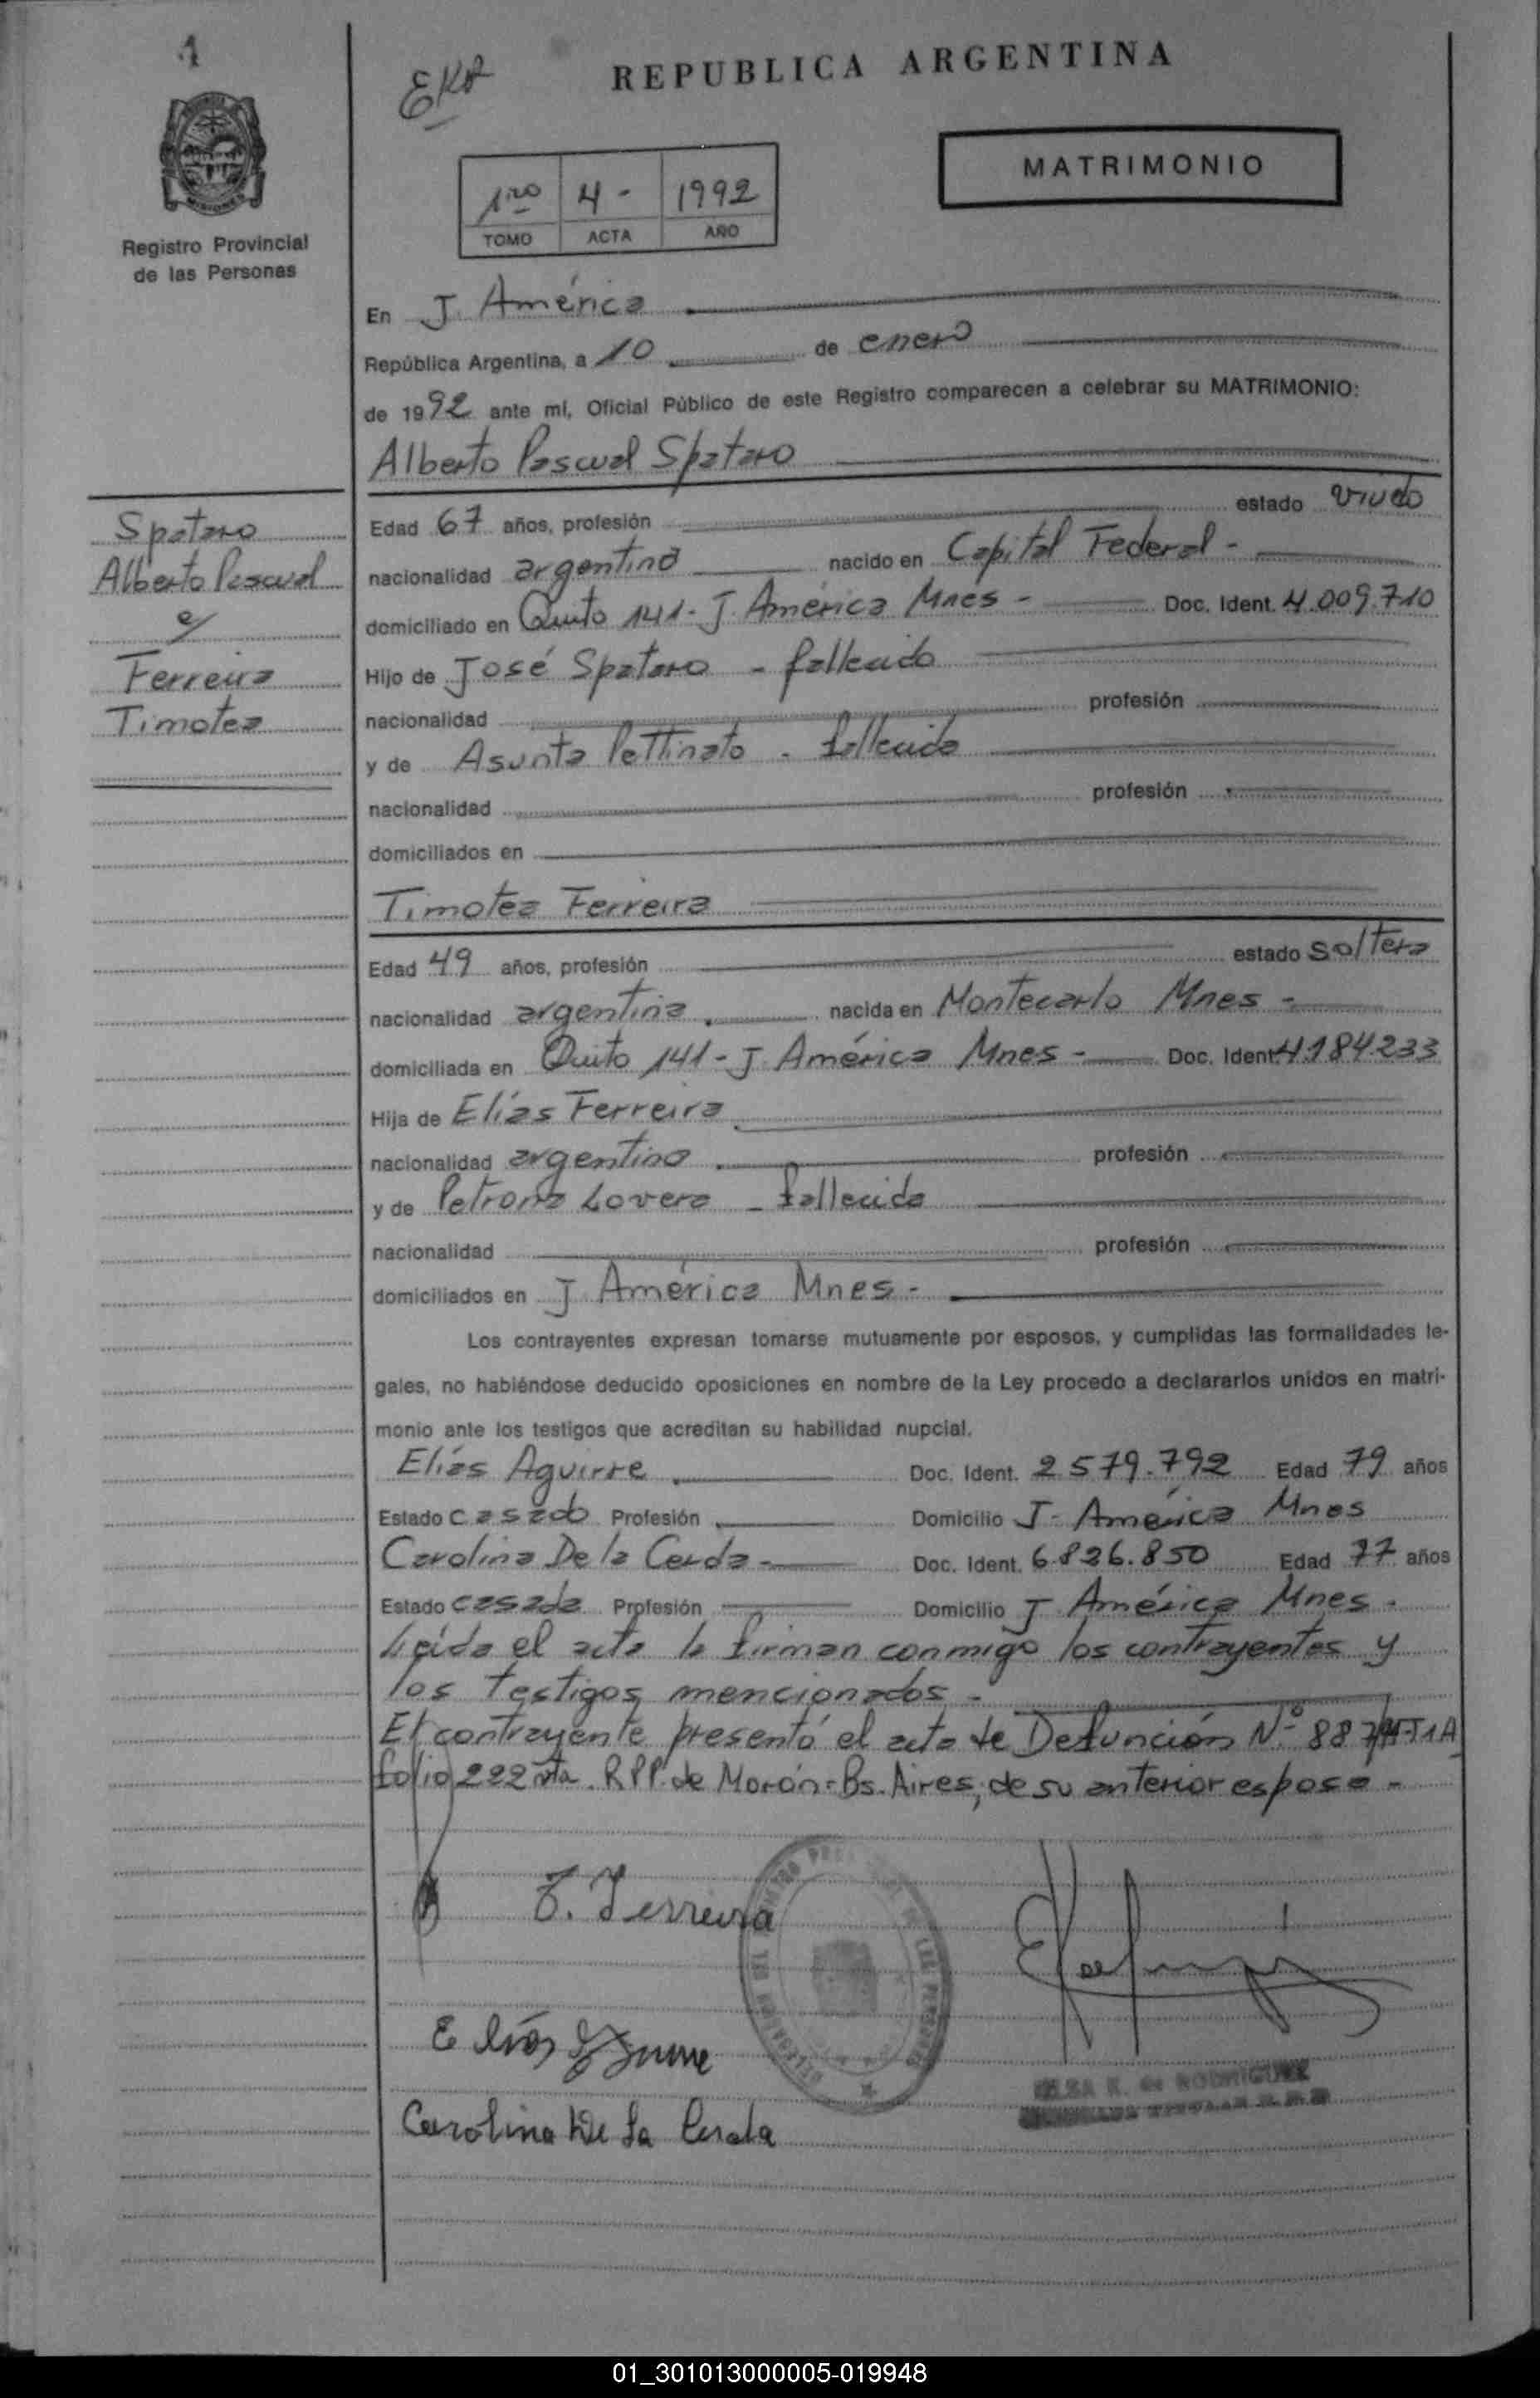 1
EKR
REPUBLICA ARGENTINA
MATRIMONIO
1ro 4- 1992
TOMO ACTA AÑO
MISIONES
Registro Provincial
de las Personas
En J. América
República Argentina, a 10 de enero
de 1992 ante mí, Oficial Público de este Registro comparecen a celebrar su MATRIMONIO:
Alberto Pascual Spataro
Spataro
Alberto Pascual
c/
Ferreira
Timotea
Edad 67 años, profesión estado viudo
nacionalidad argentino nacido en Capital Federal -
domiciliado en Quito 141 - J. América Mnes - Doc. Ident. 4.009.710
Hijo de José Spataro - fallecido
nacionalidad profesión
y de Asunta Pettinato - fallecida
nacionalidad profesión
domiciliados en
Timotea Ferreira
Edad 49 años, profesión estado soltera
nacionalidad argentina. nacida en Montecarlo Mnes -
domiciliada en Quito 141 - J. América Mnes - Doc. Ident. 4.184.233
Hija de Elías Ferreira
nacionalidad argentino profesión
y de Petrona Lovera - fallecida
nacionalidad profesión
domiciliados en J. América Mnes -
Los contrayentes expresan tomarse mutuamente por esposos, y cumplidas las formalidades le-
gales, no habiéndose deducido oposiciones en nombre de la Ley procedo a declararlos unidos en matri-
monio ante los testigos que acreditan su habilidad nupcial.
Elías Aguirre Doc. Ident. 2.579.792 Edad 79 años
Estado casado Profesión Domicilio J. América Mnes
Carolina De la Cerda - Doc. Ident. 6.826.850 Edad 77 años
Estado casada Profesión Domicilio J. América Mnes -
Leída el acta la firman conmigo los contrayentes y
los testigos mencionados -
El contrayente presentó el acta de Defunción Nº 887 T1A
folio 222 vta. R.P.P. de Morón - Bs. Aires, de su anterior esposa -
T. Ferreira
Elías Aguirre
ELSA K. de RODRIGUEZ
Carolina De La Cerda
01_301013000005-019948